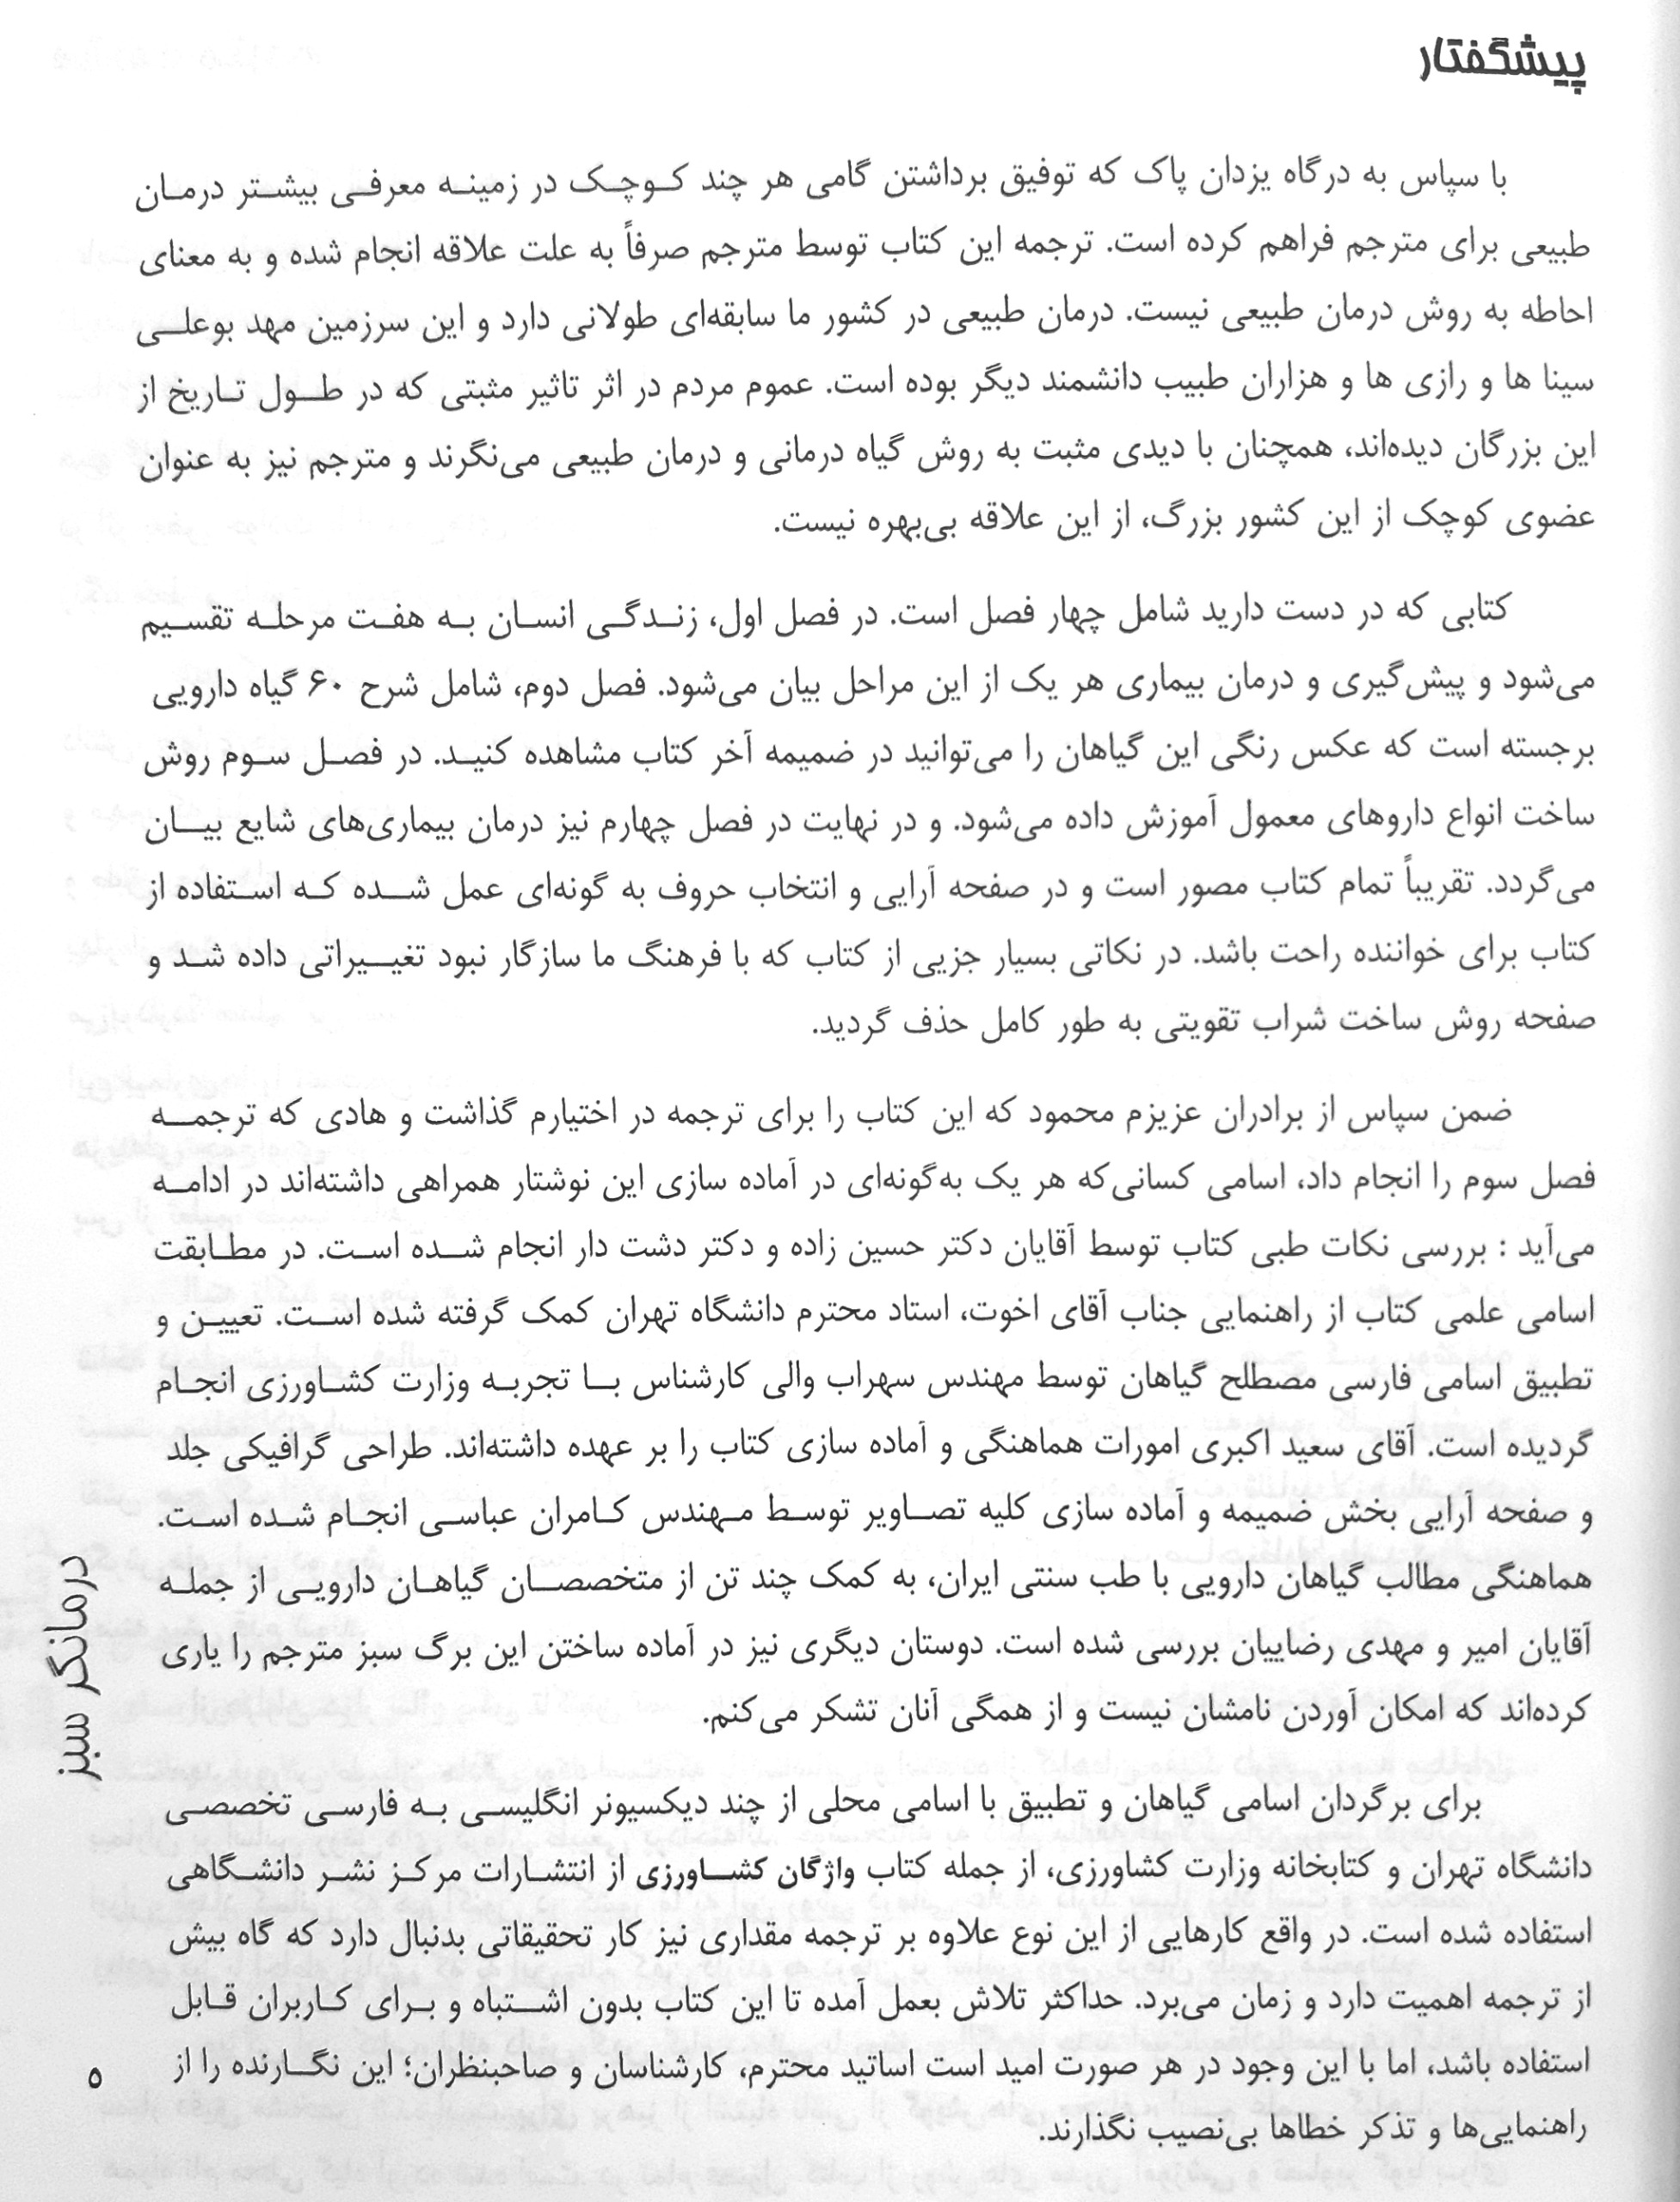 پیشگفتار
با سپاس به درگاه یزدان پاک که توفیق برداشتن گامی هر چند کوچک در زمینه معرفی بیشتر درمان
طبیعی برای مترجم فراهم کرده است. ترجمه این کتاب توسط مترجم صرفاً به علت علاقه انجام شده و به معنای
احاطه به روش درمان طبیعی نیست. درمان طبیعی در کشور ما سابقه‌ای طولانی دارد و این سرزمین مهد بوعلی
سینا ها و رازی ها و هزاران طبیب دانشمند دیگر بوده است. عموم مردم در اثر تاثیر مثبتی که در طول تاریخ از
این بزرگان دیده‌اند، همچنان با دیدی مثبت به روش گیاه درمانی و درمان طبیعی می‌نگرند و مترجم نیز به عنوان
عضوی کوچک از این کشور بزرگ، از این علاقه بی‌بهره نیست.
کتابی که در دست دارید شامل چهار فصل است. در فصل اول، زندگی انسان به هفت مرحله تقسیم
می‌شود و پیش‌گیری و درمان بیماری هر یک از این مراحل بیان می‌شود. فصل دوم، شامل شرح ۶۰ گیاه دارویی
برجسته است که عکس رنگی این گیاهان را می‌توانید در ضمیمه آخر کتاب مشاهده کنید. در فصل سوم روش
ساخت انواع داروهای معمول آموزش داده می‌شود. و در نهایت در فصل چهارم نیز درمان بیماری‌های شایع بیان
می‌گردد. تقریباً تمام کتاب مصور است و در صفحه آرایی و انتخاب حروف به گونه‌ای عمل شده که استفاده از
کتاب برای خواننده راحت باشد. در نکاتی بسیار جزیی از کتاب که با فرهنگ ما سازگار نبود تغییراتی داده شد و
صفحه روش ساخت شراب تقویتی به طور کامل حذف گردید.
ضمن سپاس از برادران عزیزم محمود که این کتاب را برای ترجمه در اختیارم گذاشت و هادی که ترجمه
فصل سوم را انجام داد، اسامی کسانی‌که هر یک به‌گونه‌ای در آماده سازی این نوشتار همراهی داشته‌اند در ادامه
می‌آید : بررسی نکات طبی کتاب توسط آقایان دکتر حسین زاده و دکتر دشت دار انجام شده است. در مطابقت
اسامی علمی کتاب از راهنمایی جناب آقای اخوت، استاد محترم دانشگاه تهران کمک گرفته شده است. تعیین و
تطبیق اسامی فارسی مصطلح گیاهان توسط مهندس سهراب والی کارشناس با تجربه وزارت کشاورزی انجام
گردیده است. آقای سعید اکبری امورات هماهنگی و آماده سازی کتاب را بر عهده داشته‌اند. طراحی گرافیکی جلد
و صفحه آرایی بخش ضمیمه و آماده سازی کلیه تصاویر توسط مهندس کامران عباسی انجام شده است.
هماهنگی مطالب گیاهان دارویی با طب سنتی ایران، به کمک چند تن از متخصصان گیاهان دارویی از جمله
آقایان امیر و مهدی رضاییان بررسی شده است. دوستان دیگری نیز در آماده ساختن این برگ سبز مترجم را یاری
کرده‌اند که امکان آوردن نامشان نیست و از همگی آنان تشکر می‌کنم.
برای برگردان اسامی گیاهان و تطبیق با اسامی محلی از چند دیکسیونر انگلیسی به فارسی تخصصی
دانشگاه تهران و کتابخانه وزارت کشاورزی، از جمله کتاب واژگان کشاورزی از انتشارات مرکز نشر دانشگاهی
استفاده شده است. در واقع کارهایی از این نوع علاوه بر ترجمه مقداری نیز کار تحقیقاتی بدنبال دارد که گاه بیش
از ترجمه اهمیت دارد و زمان می‌برد. حداکثر تلاش بعمل آمده تا این کتاب بدون اشتباه و برای کاربران قابل
استفاده باشد، اما با این وجود در هر صورت امید است اساتید محترم، کارشناسان و صاحبنظران؛ این نگارنده را از
راهنمایی‌ها و تذکر خطاها بی‌نصیب نگذارند.
درمانگر سبز
۵